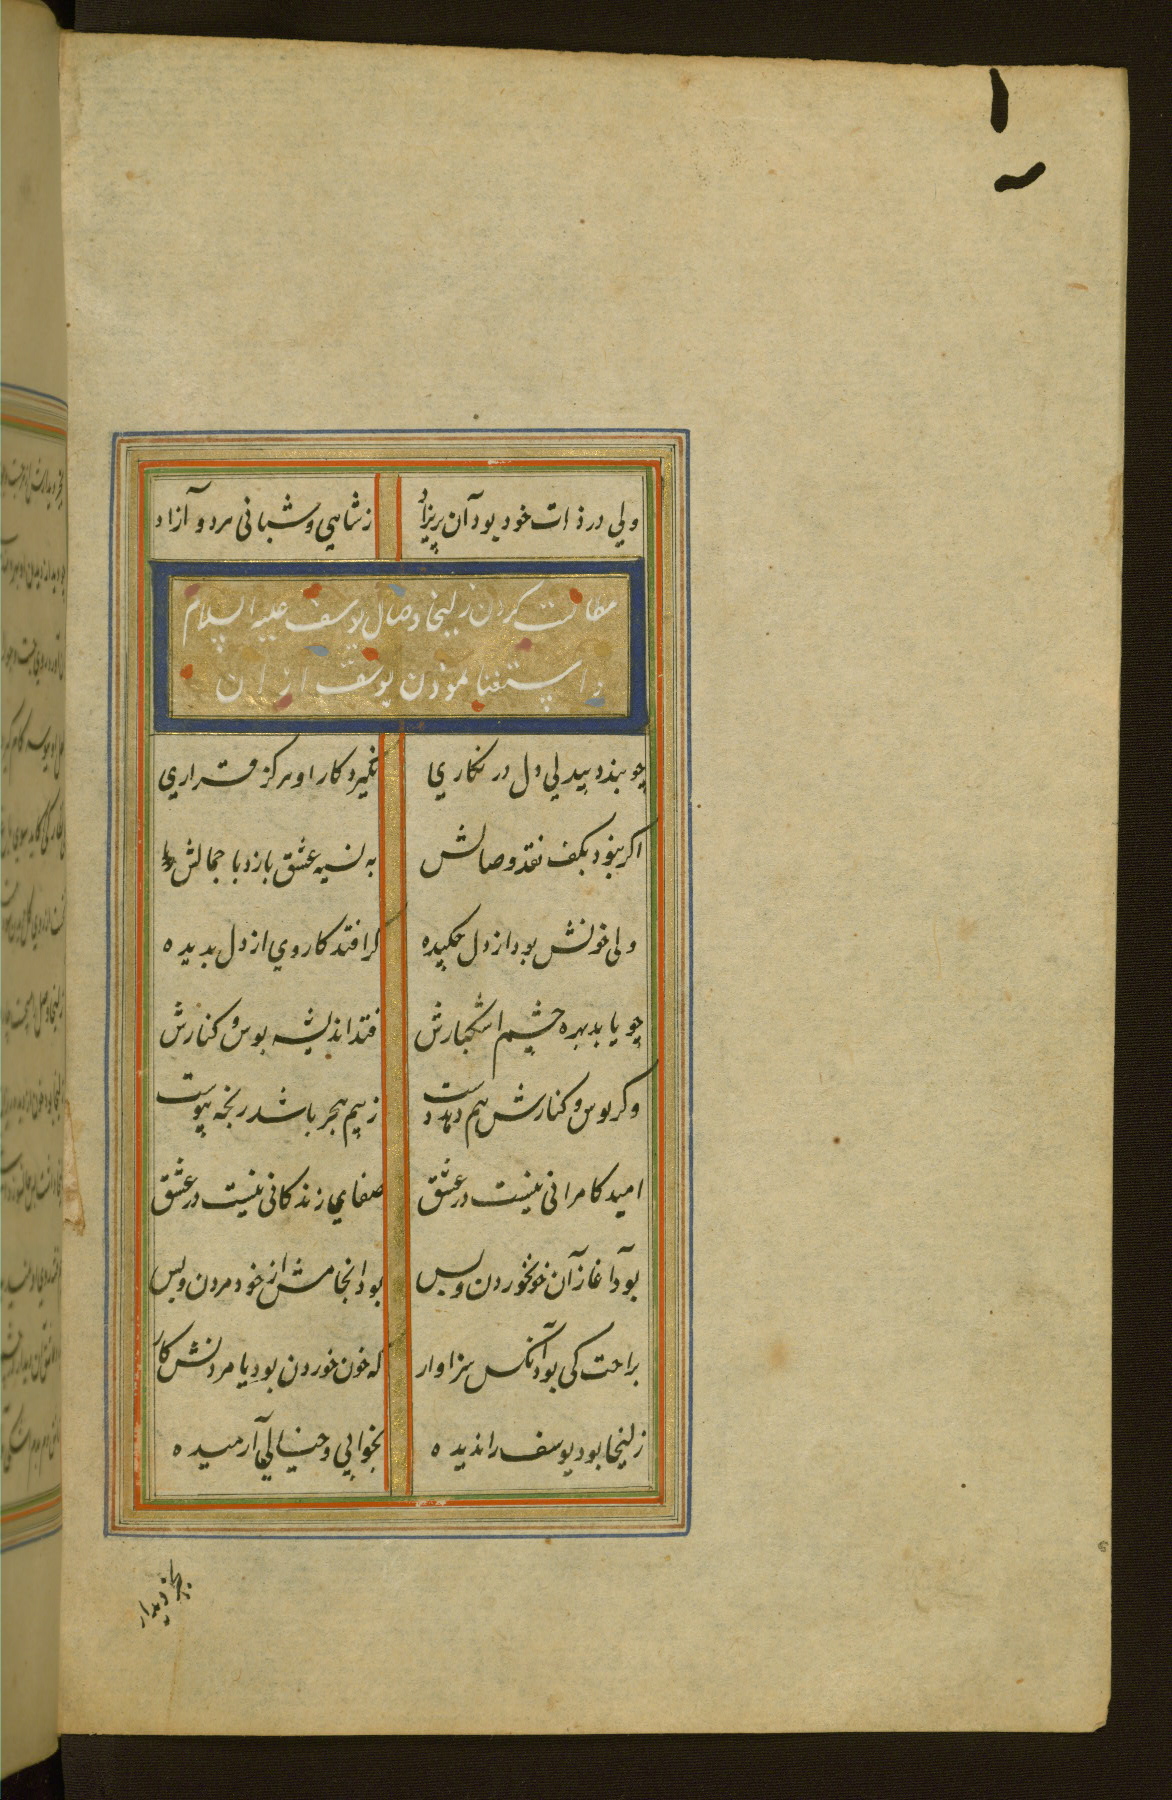 ولی در ذات خود بود آن پریزاد زشاهی و شبانی هر دو آزاد
مطالبت کردن زلیخا وصال یوسف علیه السلام
و استغنا نمودن یوسف از ان
چو بندد بیدلی دل در نکاری نکیرد کار او هرکز قراری
اکر نبود بکف نقد وصالش به نسیه عشق بازد با جمالش
ولی خونش بود از دل چکیده کر افتد کار وی از دل بدیده
چو یابد بهره چشم اشکبارش فتد اندیشه بوس و کنارش
وکر بوس و کنارش هم دهد دست زبیم هجر باشد رنجه پیوست
امید کامرانی نیست در عشق صفای زندکانی نیست در عشق
بود آغاز آن خونخوردن و بس بود انجامش از خود مردن و بس
براحت کی بود آنکس سزاوار که خون خوردن بود یا مردنش کار
زلیخا بود یوسف را ندیده بخوابی و خیالی آرمیده
بجز دیدار